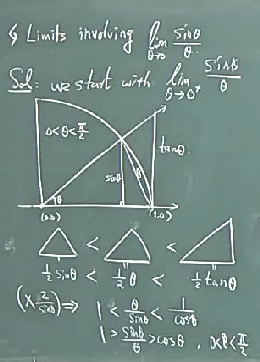 § Limits involving lim θ→0 sinθ/θ.
Sol: we start with lim θ→0⁺ sinθ/θ
0<θ<π/2
tanθ.
sinθ
θ
θ
(0,0) (1,0)
△ < △ < △
1/2 sinθ < 1/2 θ < 1/2 tanθ
(× 2/sinθ) ⇒ 1 < θ/sinθ < 1/cosθ
1 > sinθ/θ > cosθ, 0<θ<π/2